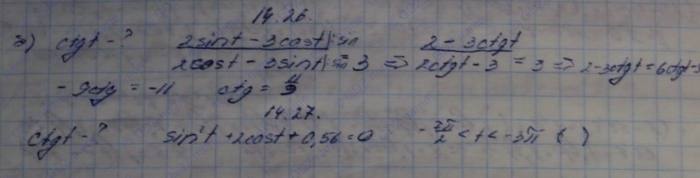 14.26.
ctgt - ? 2sint - 3cost |: sin 2 - 3ctgt
2cost - 3sint |: sin = 3 => 2ctgt - 3 = 3 => 2-3ctgt = 6ctgt-9
- 9ctg = -11 ctg = 11/9
14.27.
Ctgt - ? sin²t + 2cost + 0,56 = 0 - 7π/2 < t < -3π ( )